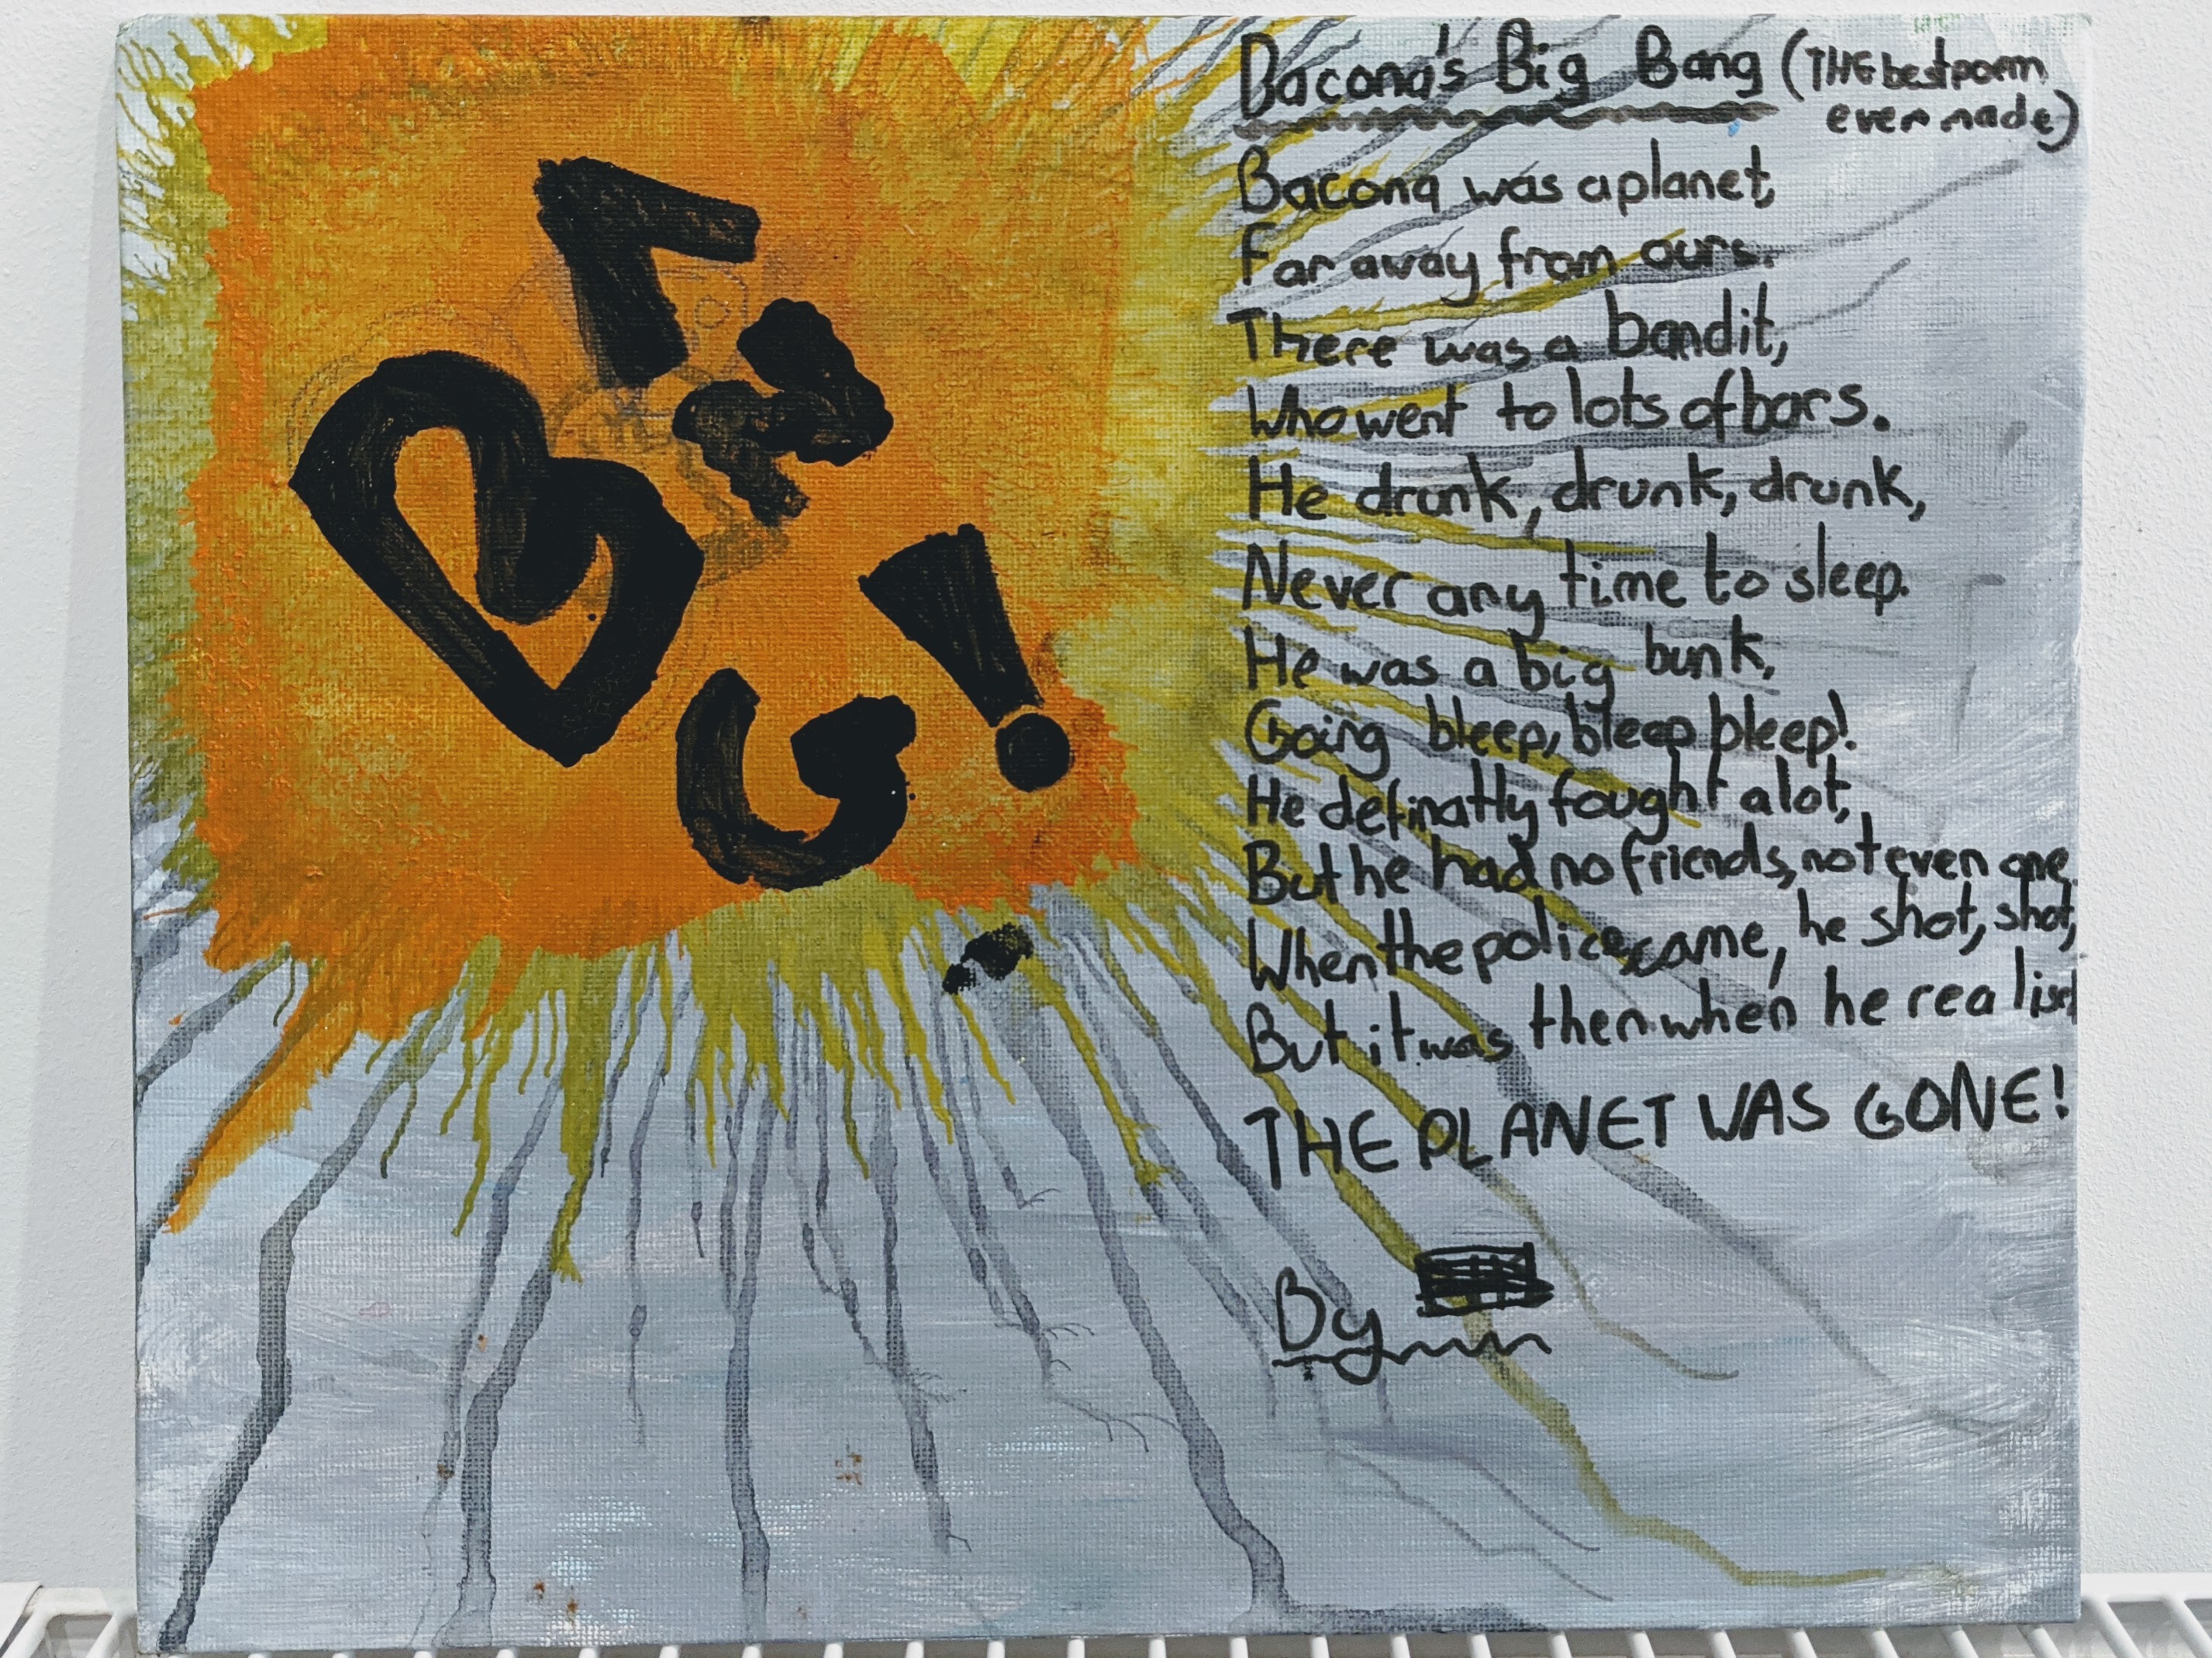 Bacona's Big Bang (THE best poem
ever made)
Bacona was a planet,
Far away from ours.
There was a bandit,
Who went to lots of bars.
He drunk, drunk, drunk,
Never any time to sleep.
He was a big bunk,
Going bleep, bleep bleep!
He definatly fought alot,
But he had no friends, not even one,
When the police came, he shot, shot,
But it was then when he realised
THE PLANET WAS GONE!
By